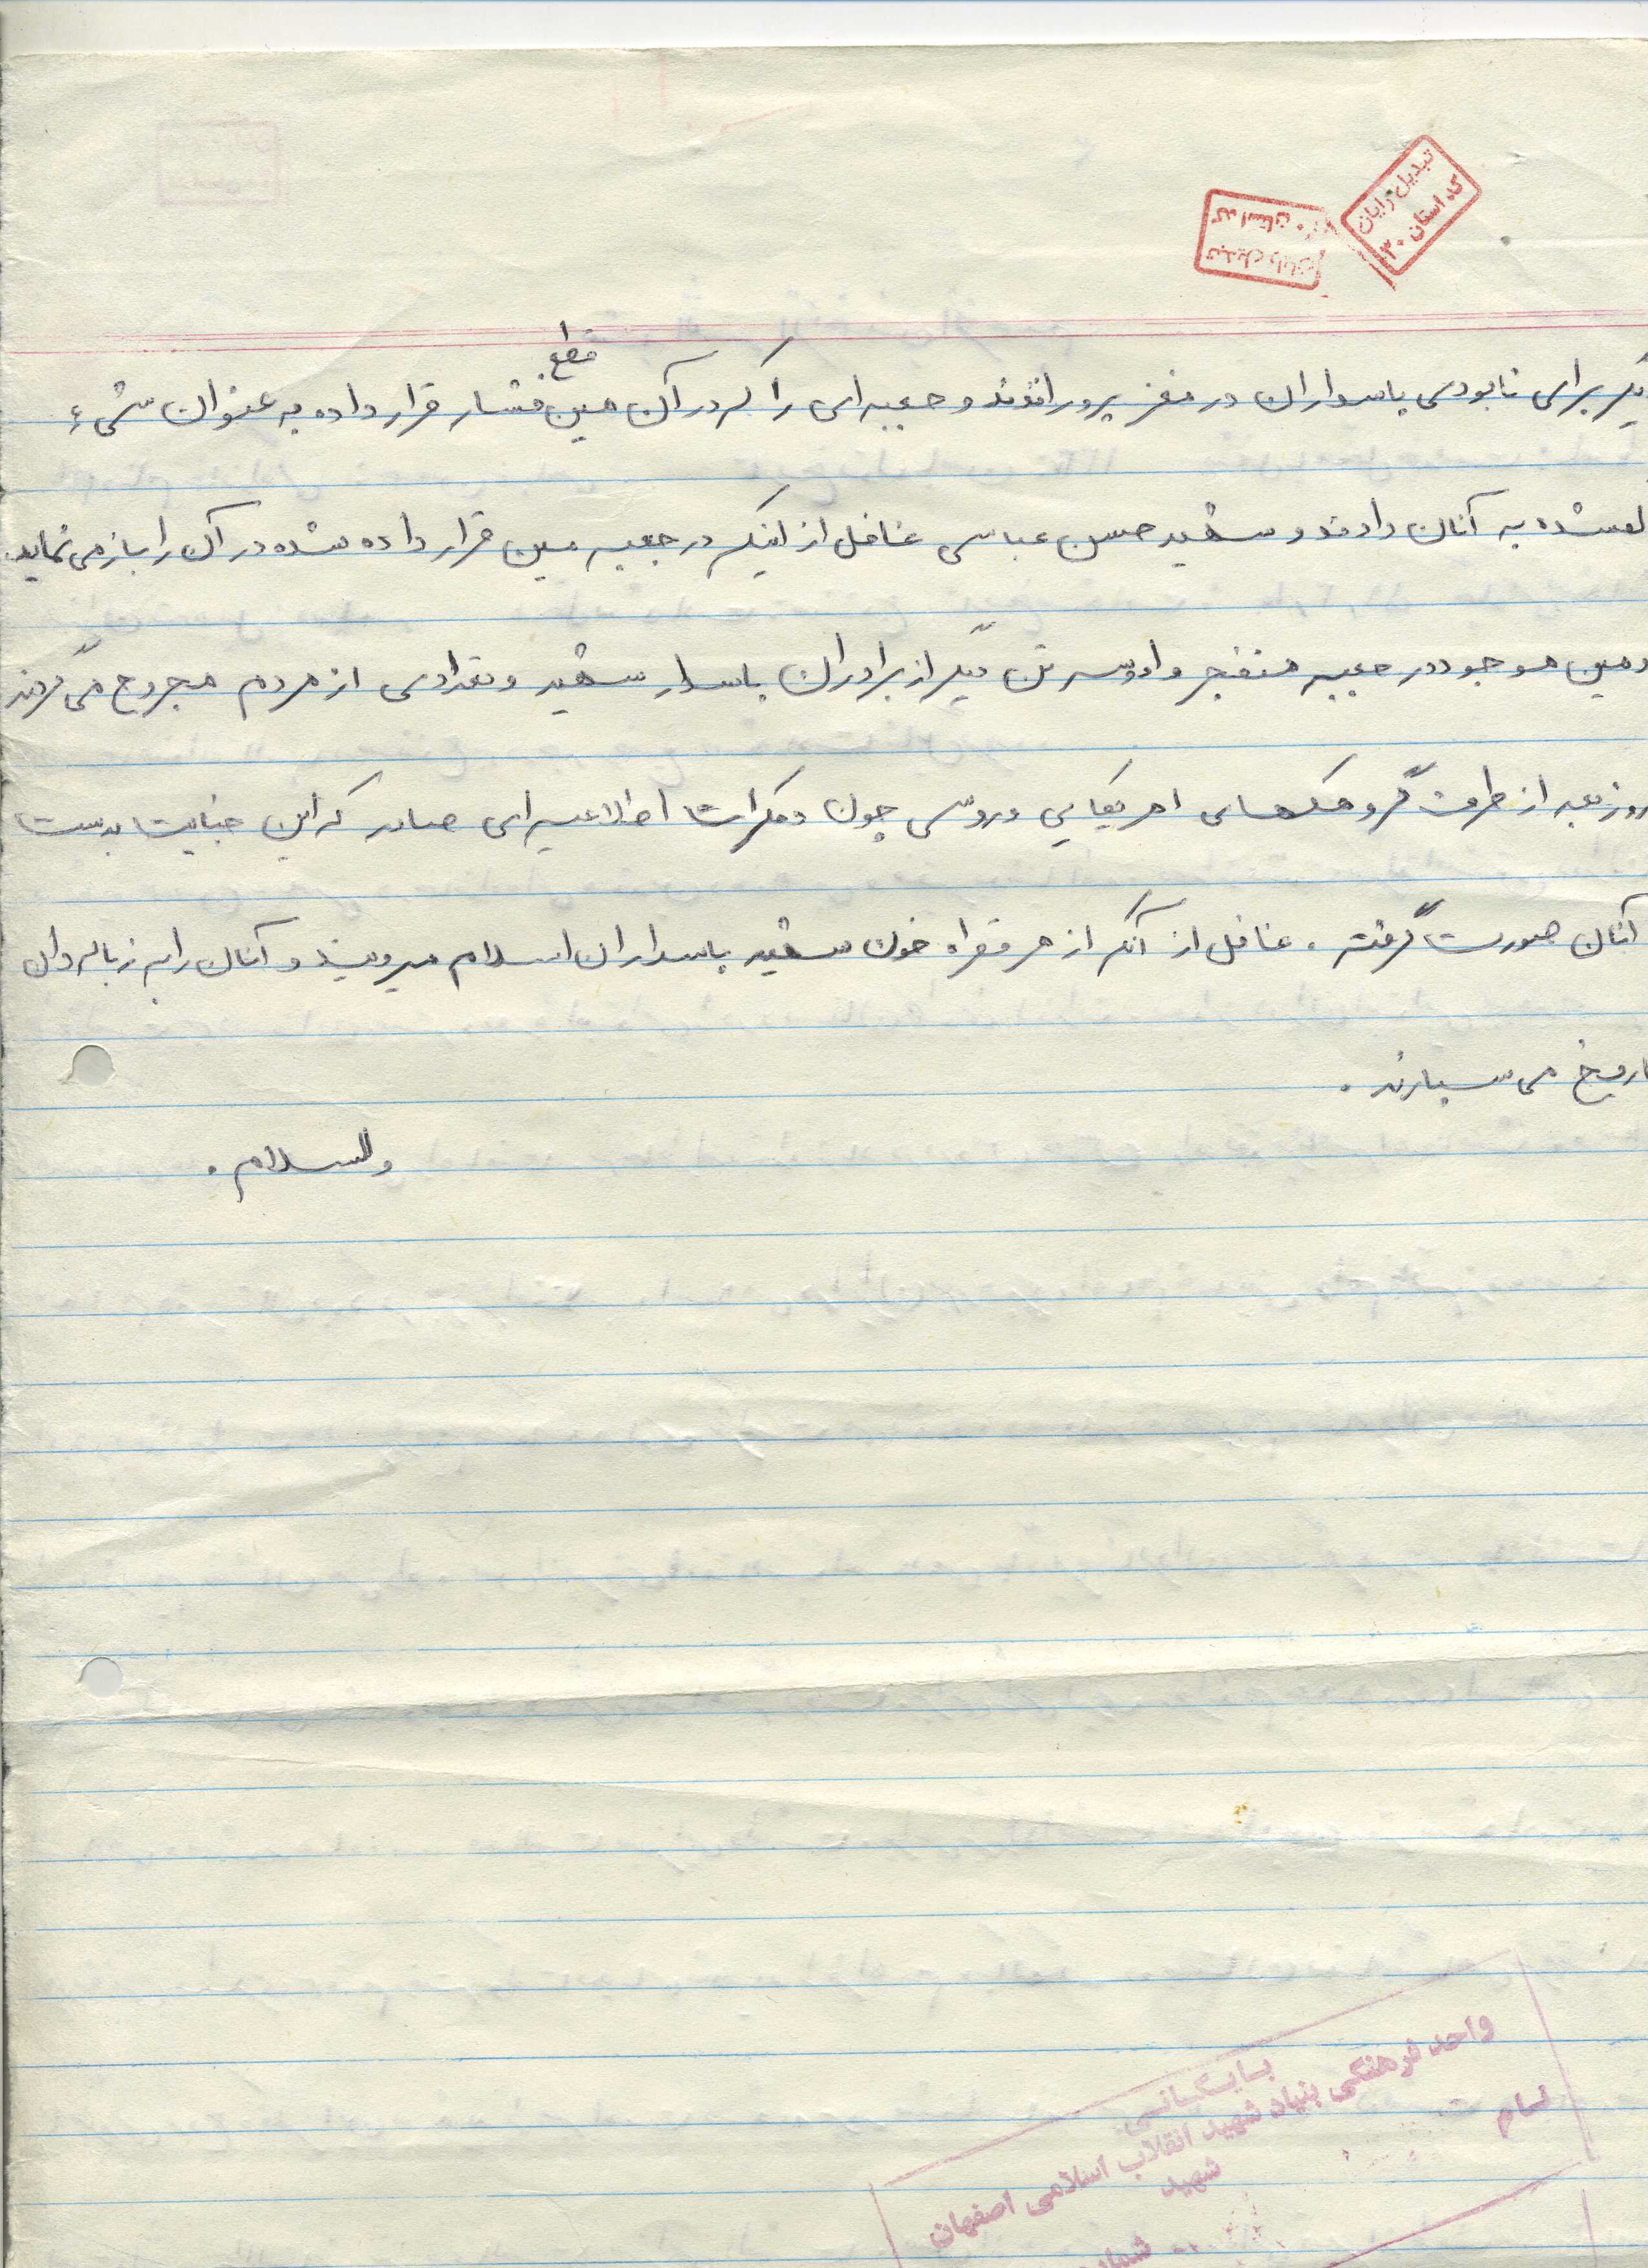 تبدیل رایان
کد استان ۳۰
کد استان
تبدیل رایان
قطع
برای نابودی پاسداران در مغز پروراندند و جعبه‌ای را که در آن مین فشار قرار داده به عنوان شیء
شده به آنان دادند و شهید حسن عباسی غافل از اینکه در جعبه مین قرار داده شده در آن را باز می نماید
ومین موجود در جعبه منفجر و او و سه تن دیگر از برادران پاسدار شهید و تعدادی از مردم مجروح می گردند
روز بعد از طرف گروهکهای امریکایی و روسی چون دمکرات اطلاعیه ای صادر که این جنایت بدست
آنان صورت گرفته . غافل از آنکه از هر قطره خون شهید پاسداران اسلام میرویند و آنان را به زباله دان
تاریخ می سپارند .
والسلام .
بایگانی
واحد فرهنگی بنیاد شهید انقلاب اسلامی اصفهان
نام
شهید